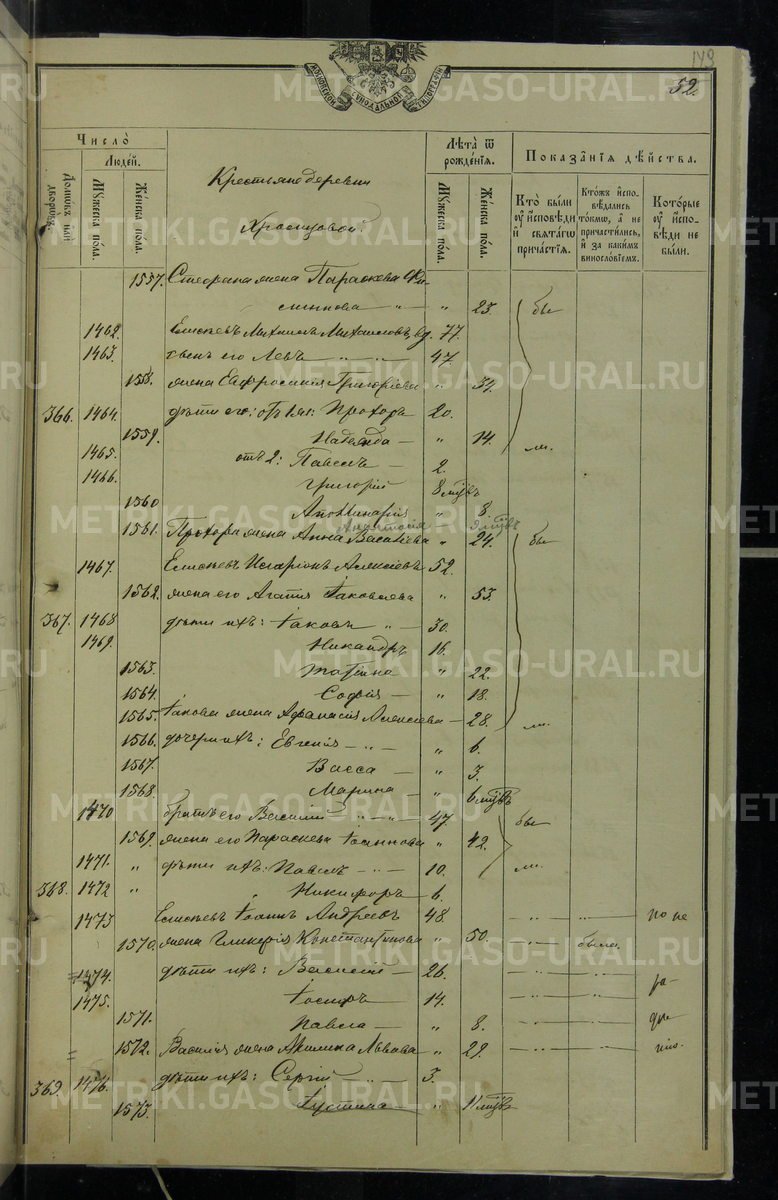 143
52.
Число
Людей.
Лѣта ѿ рожденїя.
Показанїя дѣйства.
Домωвъ или дворωвъ.
Мꙋжеска пола.
Женска пола.
Крестьяне деревни
Храмцовой.
Мꙋжеска пола.
Женска пола.
Кто были ᲂу исповѣди и свѧтагω причастїѧ.
Ктожъ исповѣдались токмω, а не причастились, и за какимъ винословїемъ.
Которые ᲂу исповѣди не были.
1557. Стефана жена Параскева
" 23. бы
1462. Елисѣевъ Михаилъ Михаиловъ, вд. 77.
1463. сынъ его Левъ — " — " 47.
1558. жена Евфросинія Григоріева " 34.
366. 1464. дѣти его: отъ 1 ж: Прохоръ 20.
1559. Надежда — " 14. ли.
1465. отъ 2: Павелъ — 2.
1466. Григорій 8 мцвъ
1560 Аполинарія " 8.
Анастасія — 9 мцвъ
1561. Прохора жена Анна Васильева " 24. бы
1467. Елисѣевъ Иларіонъ Алексѣевъ 52.
1562. жена его Агапія Іаковлева " 53.
367. 1468 дѣти ихъ: Іаковъ " — 30.
1469. Никандръ 16.
1563. Татіана " 22.
1564. Софія — " 18.
1565. Іакова жена Афанасія Алексѣева — 28. ли.
1566. дочери ихъ: Евгенія — " — " 6.
1567. Васса — " 3.
1568. Марина — " 6 мцвъ
1470 братъ его Василій — " — " 47. бы
1569. жена его Параскева Іоаннова " 42.
1471. " дѣти ихъ: Павелъ — " — 10. ли.
368. 1472 " Никифоръ — 6.
1473 Елисѣевъ Іоаннъ Андреевъ 48. — " — — " — по не
1570. жена Гликерія Константинова " 50. — " — была.
1474. дѣти ихъ: Василій — 26. — " — — " — ра-
1475. Іосифъ 14. — " — — " —
1571. Павла — " 8. ды
1572. Василія жена Акилина Львова " 29. — " — — " — нію.
369. 1476. дѣти ихъ: Сергій — " — 3.
1573. Іустина — " 11 мцвъ
METRIKI.GASO-URAL.RU